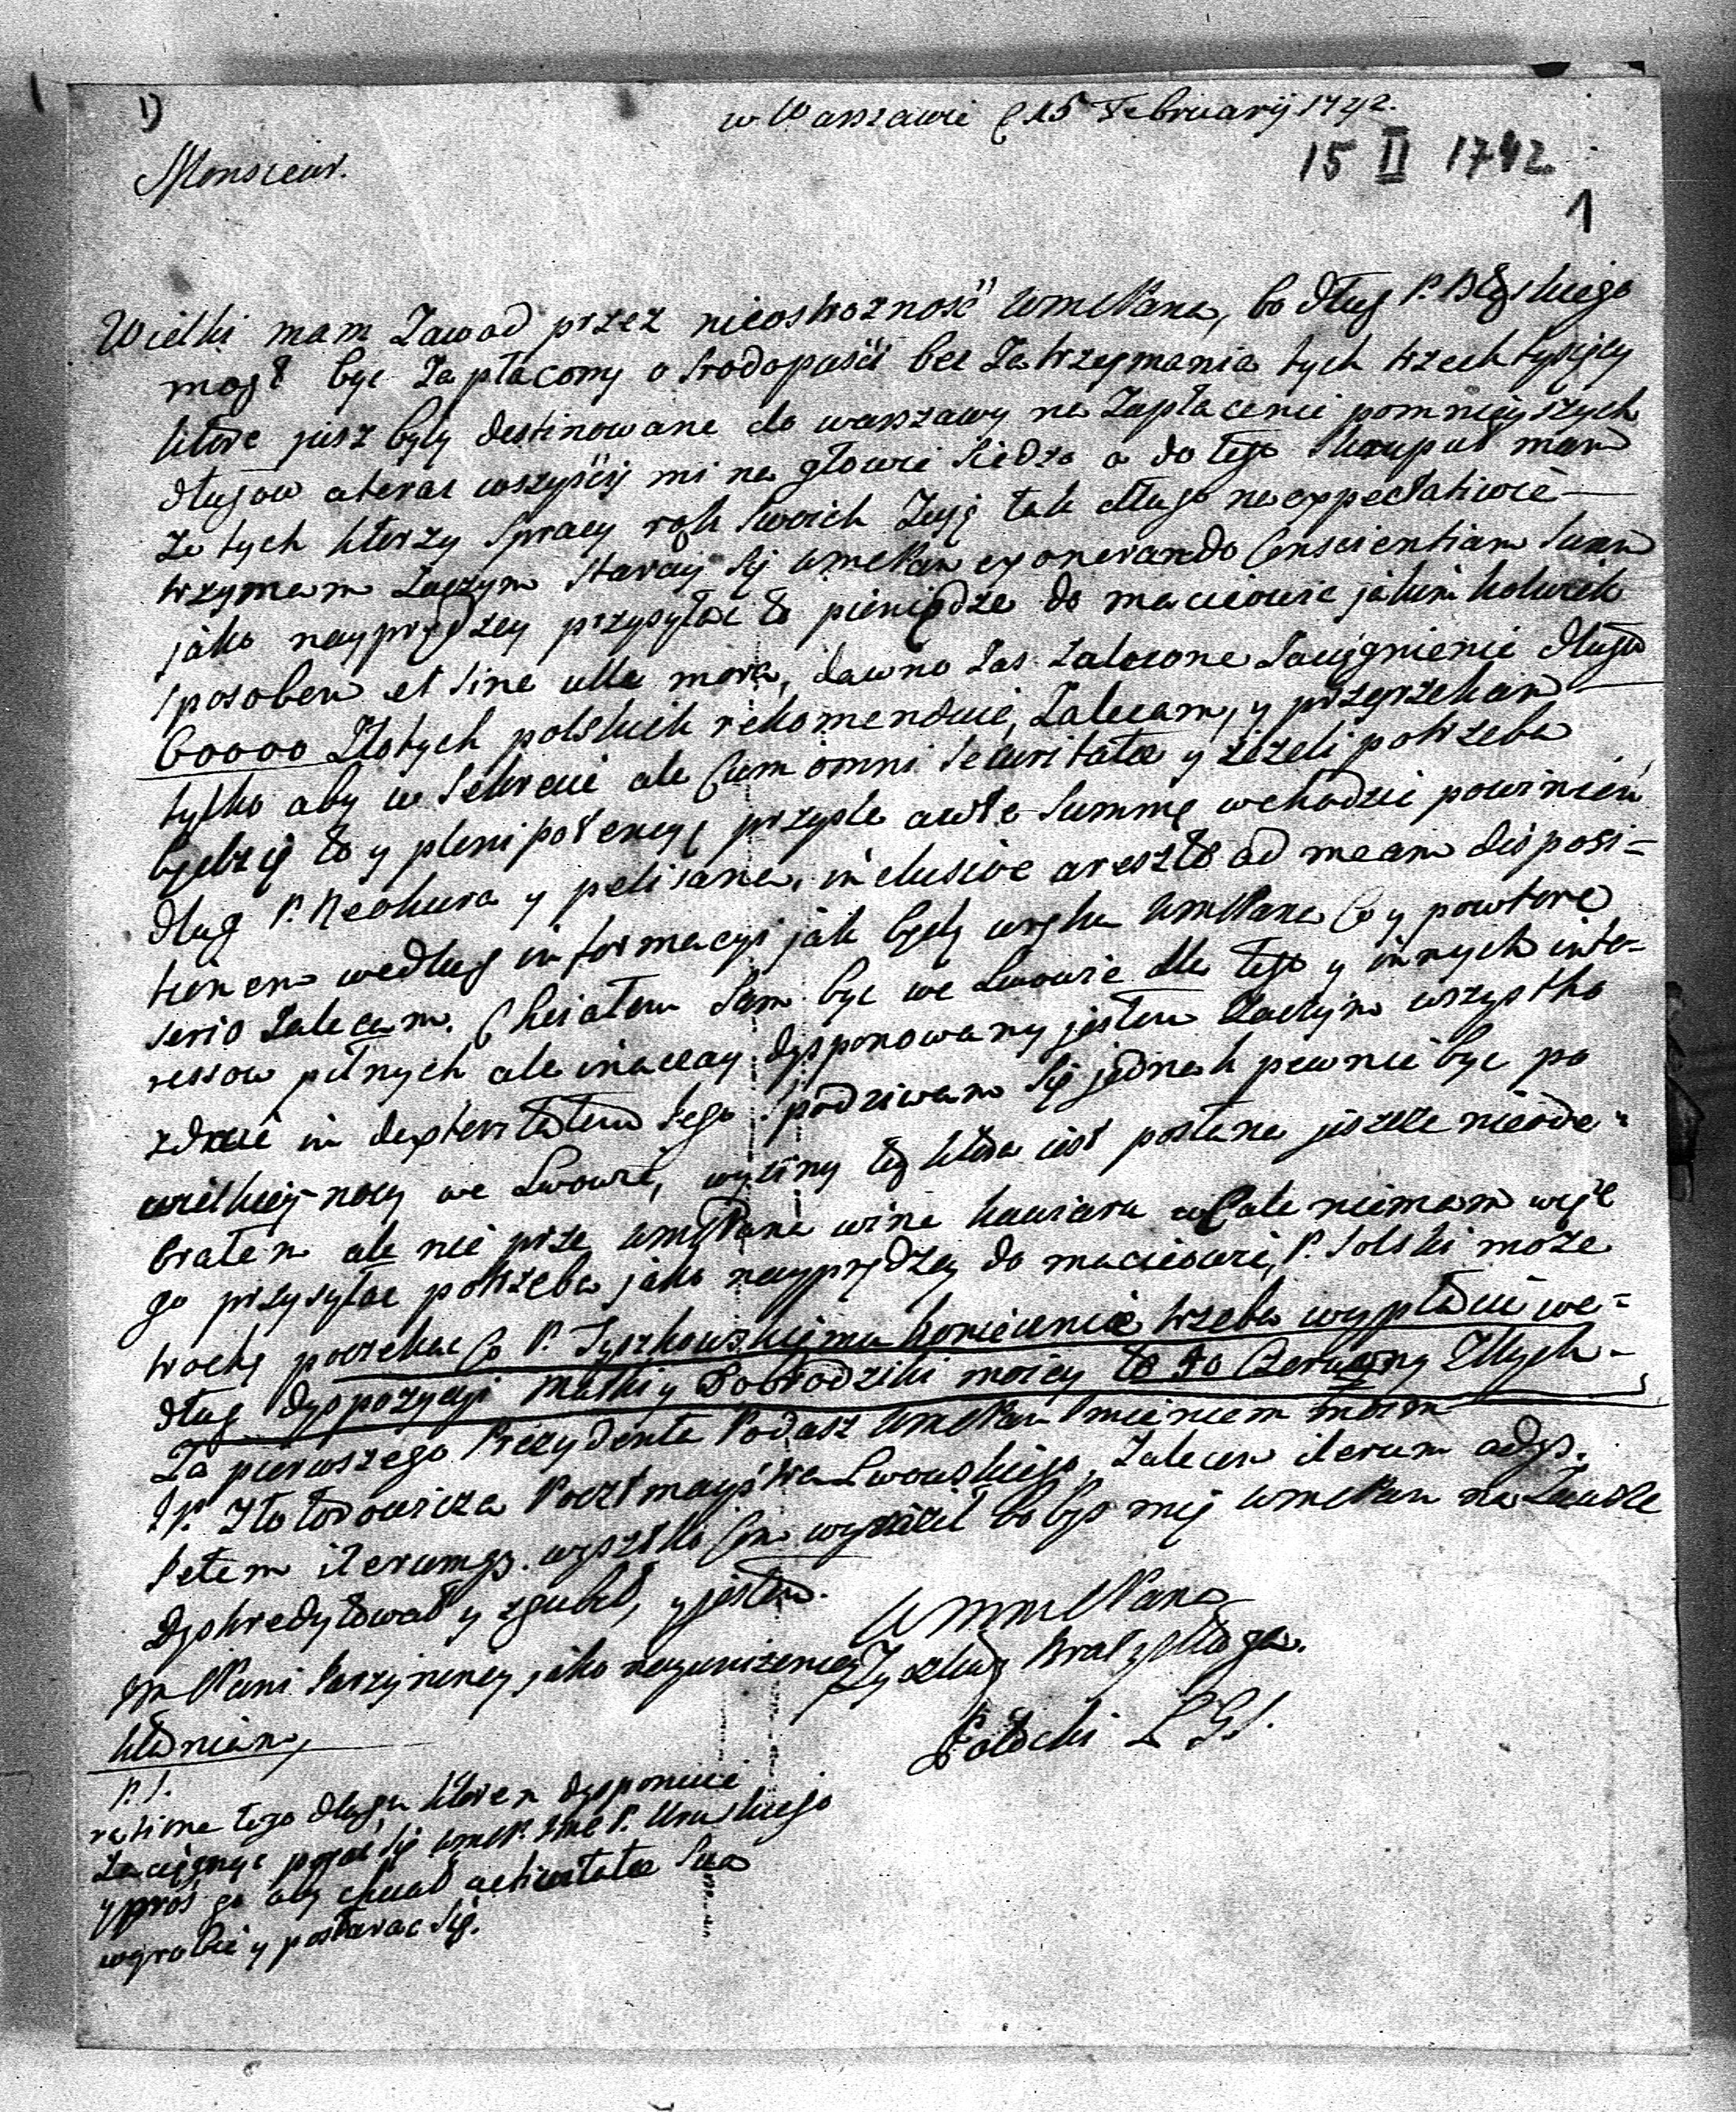 1)
w Warszawie d 15 Februarij 1742.
15 II 1742
1
Monsieur.
Wielki mam Zawod przez nieostrożność WMMPana, bo dług P. Bł‌ęskiego
mogł byc Zapłacony o srodopusciu bez Zatrzymania tych trzech tysięcy
ktore jusz były destinowane do warszawy na Zapłacenie pomnieyszych
długow ateraz wszyscy mi na głowie siedzo a do tego skrupuł mam
Ze tych ktorzy spracy rąk swoich Zyję tak długo na expectatiwie
trzymam Zaczym staray się WMMPan exonerando Conscientiam suam
jako nayprędzey przysyłac te pieniędze do maciowic jakim kolwiek
sposobem et sine ulla mora, dawno zas zalocone Zaciągnienie długu
60000 Złotych polskich rekomenduię, Zalecam, y przyrzekam
tylko aby w sekrecie ale Cum omni securitate y iezeli potrzeba
będzię to y plenipotencyę przysle awte summę wchodzic powinien
dług P. y pelisana, inclusive areszto ad meam disposi=
tionem według informacyi jak będę uręku WMMPana Co y powtore
serio Zalecam. Chciałem sam byc we Lwowie dla tego y innych inte=
ressow pilnych ale inaczey dysponowany jestem Zaczym wszystko
zdaie in dexteritatem Jego spodziwam się jednak pewnie byc po
wielkiey nocy we Lwowie, wyziny tey ktora iest posłana jeszcze nieode=
brałem ale nie prze WMMPana wine kawiaru wcale niemam więc
go przysyłac potrzeba jako nayprędzey do maciowic, P. Solski moze
trochę poczekac Co P. Tyszkowskiemu koniecznie trzeba wypłacic we=
dług dyspozycyi Matki y Dobrodziki moiey to 50 Czerwony Złłych
Za pierwszego Prezydenta Podasz WMMPan imieniem moim
JP. Złotorowicza Pocztmaystra Lwowskiego, Zalecam iterum adys.
Petem iterumqs. wyszstko Com wyraził bo bys mię WMMPan na Zawsze
dyskredytował y zgubił, y jestem.
WMMPana
Zyczliwy Brat y sługa.
Potocki
JM Pani Parzyneney jako nayunizeniey
kłaniam,
P.S.
ratione tego długu ktoren dysponuię
Zaciągnąc się WMP. JMC P. Uruskiego
y pros go aby chciał activitatae sua
wyrobic y postarac się.